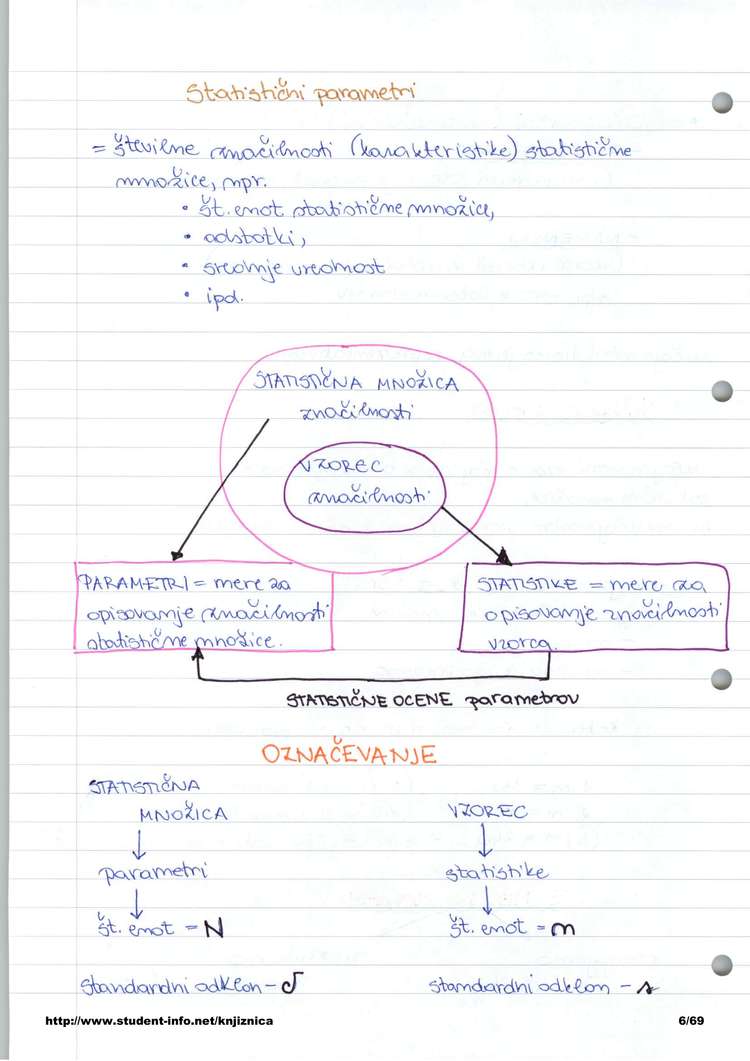 Statistični parametri
= številne značilnosti (karakteristike) statistične
množice, npr.
• št. enot statistične množice,
• odstotki,
• srednje vrednost
• ipd.
STATISTIČNA MNOŽICA
značilnosti
VZOREC
značilnosti
PARAMETRI = mere za
opisovanje značilnosti
statistične množice.
STATISTIKE = mere za
opisovanje značilnosti
vzorca.
STATISTIČNE OCENE parametrov
OZNAČEVANJE
STATISTIČNA
MNOŽICA
VZOREC
parametri
statistike
št. enot = N
št. enot = n
standardni odklon - σ
standardni odklon - s
http://www.student-info.net/knjiznica
6/69